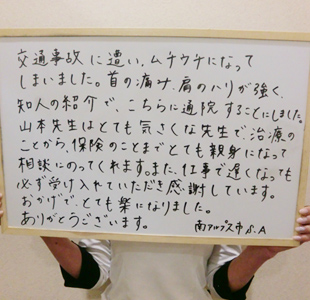 交通事故に遭い、ムチウチになって
しまいました。首の痛み、肩のハリが強く、
知人の紹介で、こちらに通院することにしました。
山本先生はとても気さくな先生で、治療の
ことから、保険のことまでとても親身になって
相談にのってくれます。また、仕事で遅くなっても
必ず受け入れていただき感謝しています。
おかげで、とても楽になりました。
ありがとうございます。
南アルプス市 S.A